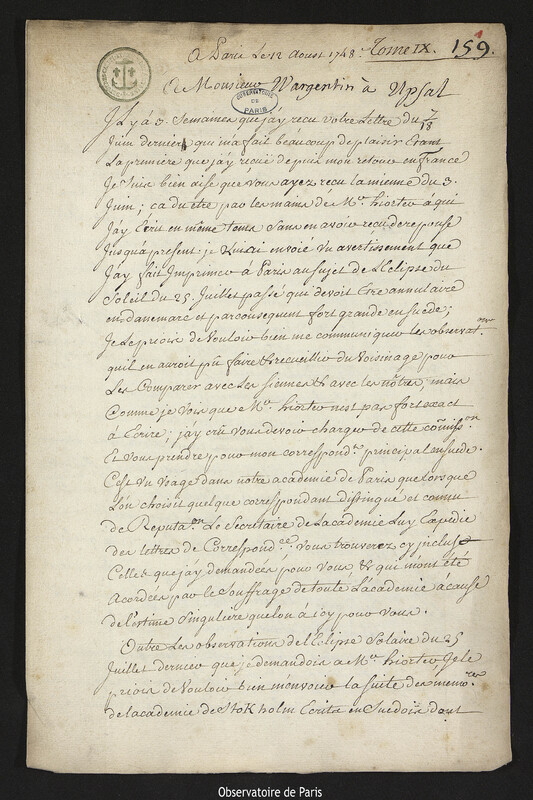 A Paris Le 12 Aoust 1748. Tome IX. 159.
A Monsieur Wargentin à Upsal
OBSERVATOIRE DE PARIS
JL y à 3 Semaines que j'ay recu Votre Lettre du 7/18
Juin dernier qui m'a fait beaucoup de plaisir Etant
La première que j'ay recüe depuis mon retour en france
Je suis bien aise que Vous ayez recu la mienne du 3.
Juin; ca du etre par les mains de Mr. hiorter à qui
J'ay Ecrit en même tems Sans en avoir recu de reponse
Jusqu'a présent: je Luy ai envoié Un avertissement que
J'ay fait Imprimer à Paris au sujet de L'Eclipse du
Soleil du 25. Juillet passé qui devoit Etre annulaire
en danemarc et par consequent fort grande en suede;
Je Le priois de Vouloir bien me communiquer les observat.ons
qu'il en auroit pû faire & recueillir du Voisinage pour
Les Comparer avec Les siennes & avec les nôtres, mais
Comme je Vois que Mr. hiorter n'est pas fort exact
à Ecrire; j'ay crû Vous devoir charger de cette com̃iss.on
Et Vous prendre pour mon correspond.t principal en suede.
C'est Un Usage dans notre academie de Paris que lorsque
L'on choisit quelque correspondant distingué et connu
de Reputa.on Le Secretaire de L'academie Luy Expedie
des lettres de Correspond.ce. Vous trouverez cy incluse
Celles que j'ay demandées pour Vous & qui m'ont été
Acordées par le Souffrage de toute L'académie a cause
de l'estime Singuliere que lon à icy pour Vous.
Outre Les observations de l'Eclipse Solaire du 25
Juillet dernier que je demandois a Mr. hiorter Je le
priois de Vouloir bien m'envoier la suite des memo.res
de l'academie de Stokholm Ecrits en Suedois dont
Observatoire de Paris